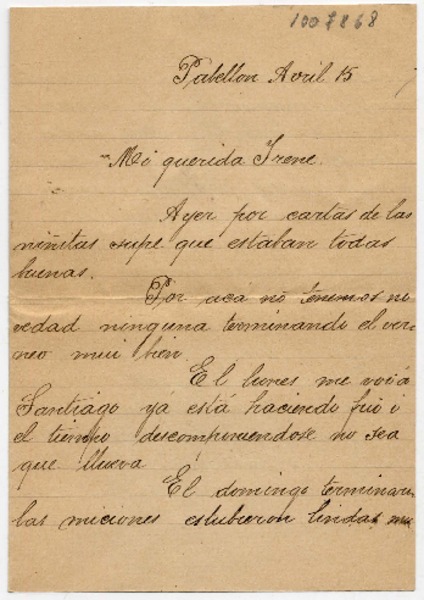 1007868
Pabellon Avril 15
Mi querida Irene.
Ayer por cartas de las
niñitas supe que estaban todas
buenas.
Por acá no tenemos no
vedad ninguna terminando el vera
neo mui bien
El lunes me voi á
Santiago yá está haciendo frio i
el tiempo descomponiendose no sea
que llueva
El domingo terminaron
las miciones estubieron lindas